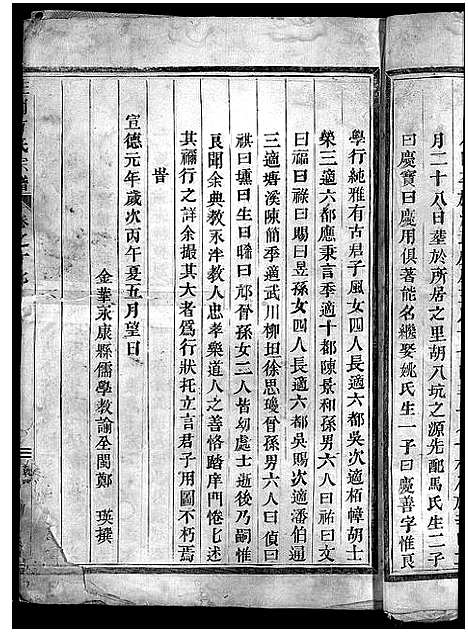 月二十八日葬於所居之里胡八坑之源先配馬氏生二子
曰慶寶曰慶用俱著能名繼娶姚氏生一子曰慶善字惟良
學行純雅有古君子風女四人長適六都吳次適栢幛胡士
榮三適六都應秉言季適十都陳景和孫男六人曰祐曰文
曰福曰祿曰賜曰昱孫女四人長適六都吳賜次適潘伯通
三適塘溪陳簡季適武川柳坦徐思瓊曾孫男六人曰偵曰
祺曰壎曰生曰曰祁曾孫女二人皆幼處士逝後乃嗣惟
良聞余典教永泮教人忠孝樂道人之善恪踏庠門惓匕述
其禰行之詳余撮其大者爲行狀托立言君子用圖不朽焉
旹
宣德元年歲次丙午夏五月望日
金華永康縣儒學教諭全閩鄭 瑛撰